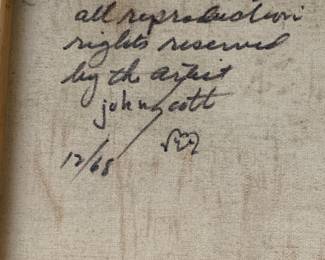 all reproduction
rights reserved
by the artist
john scott
12/68